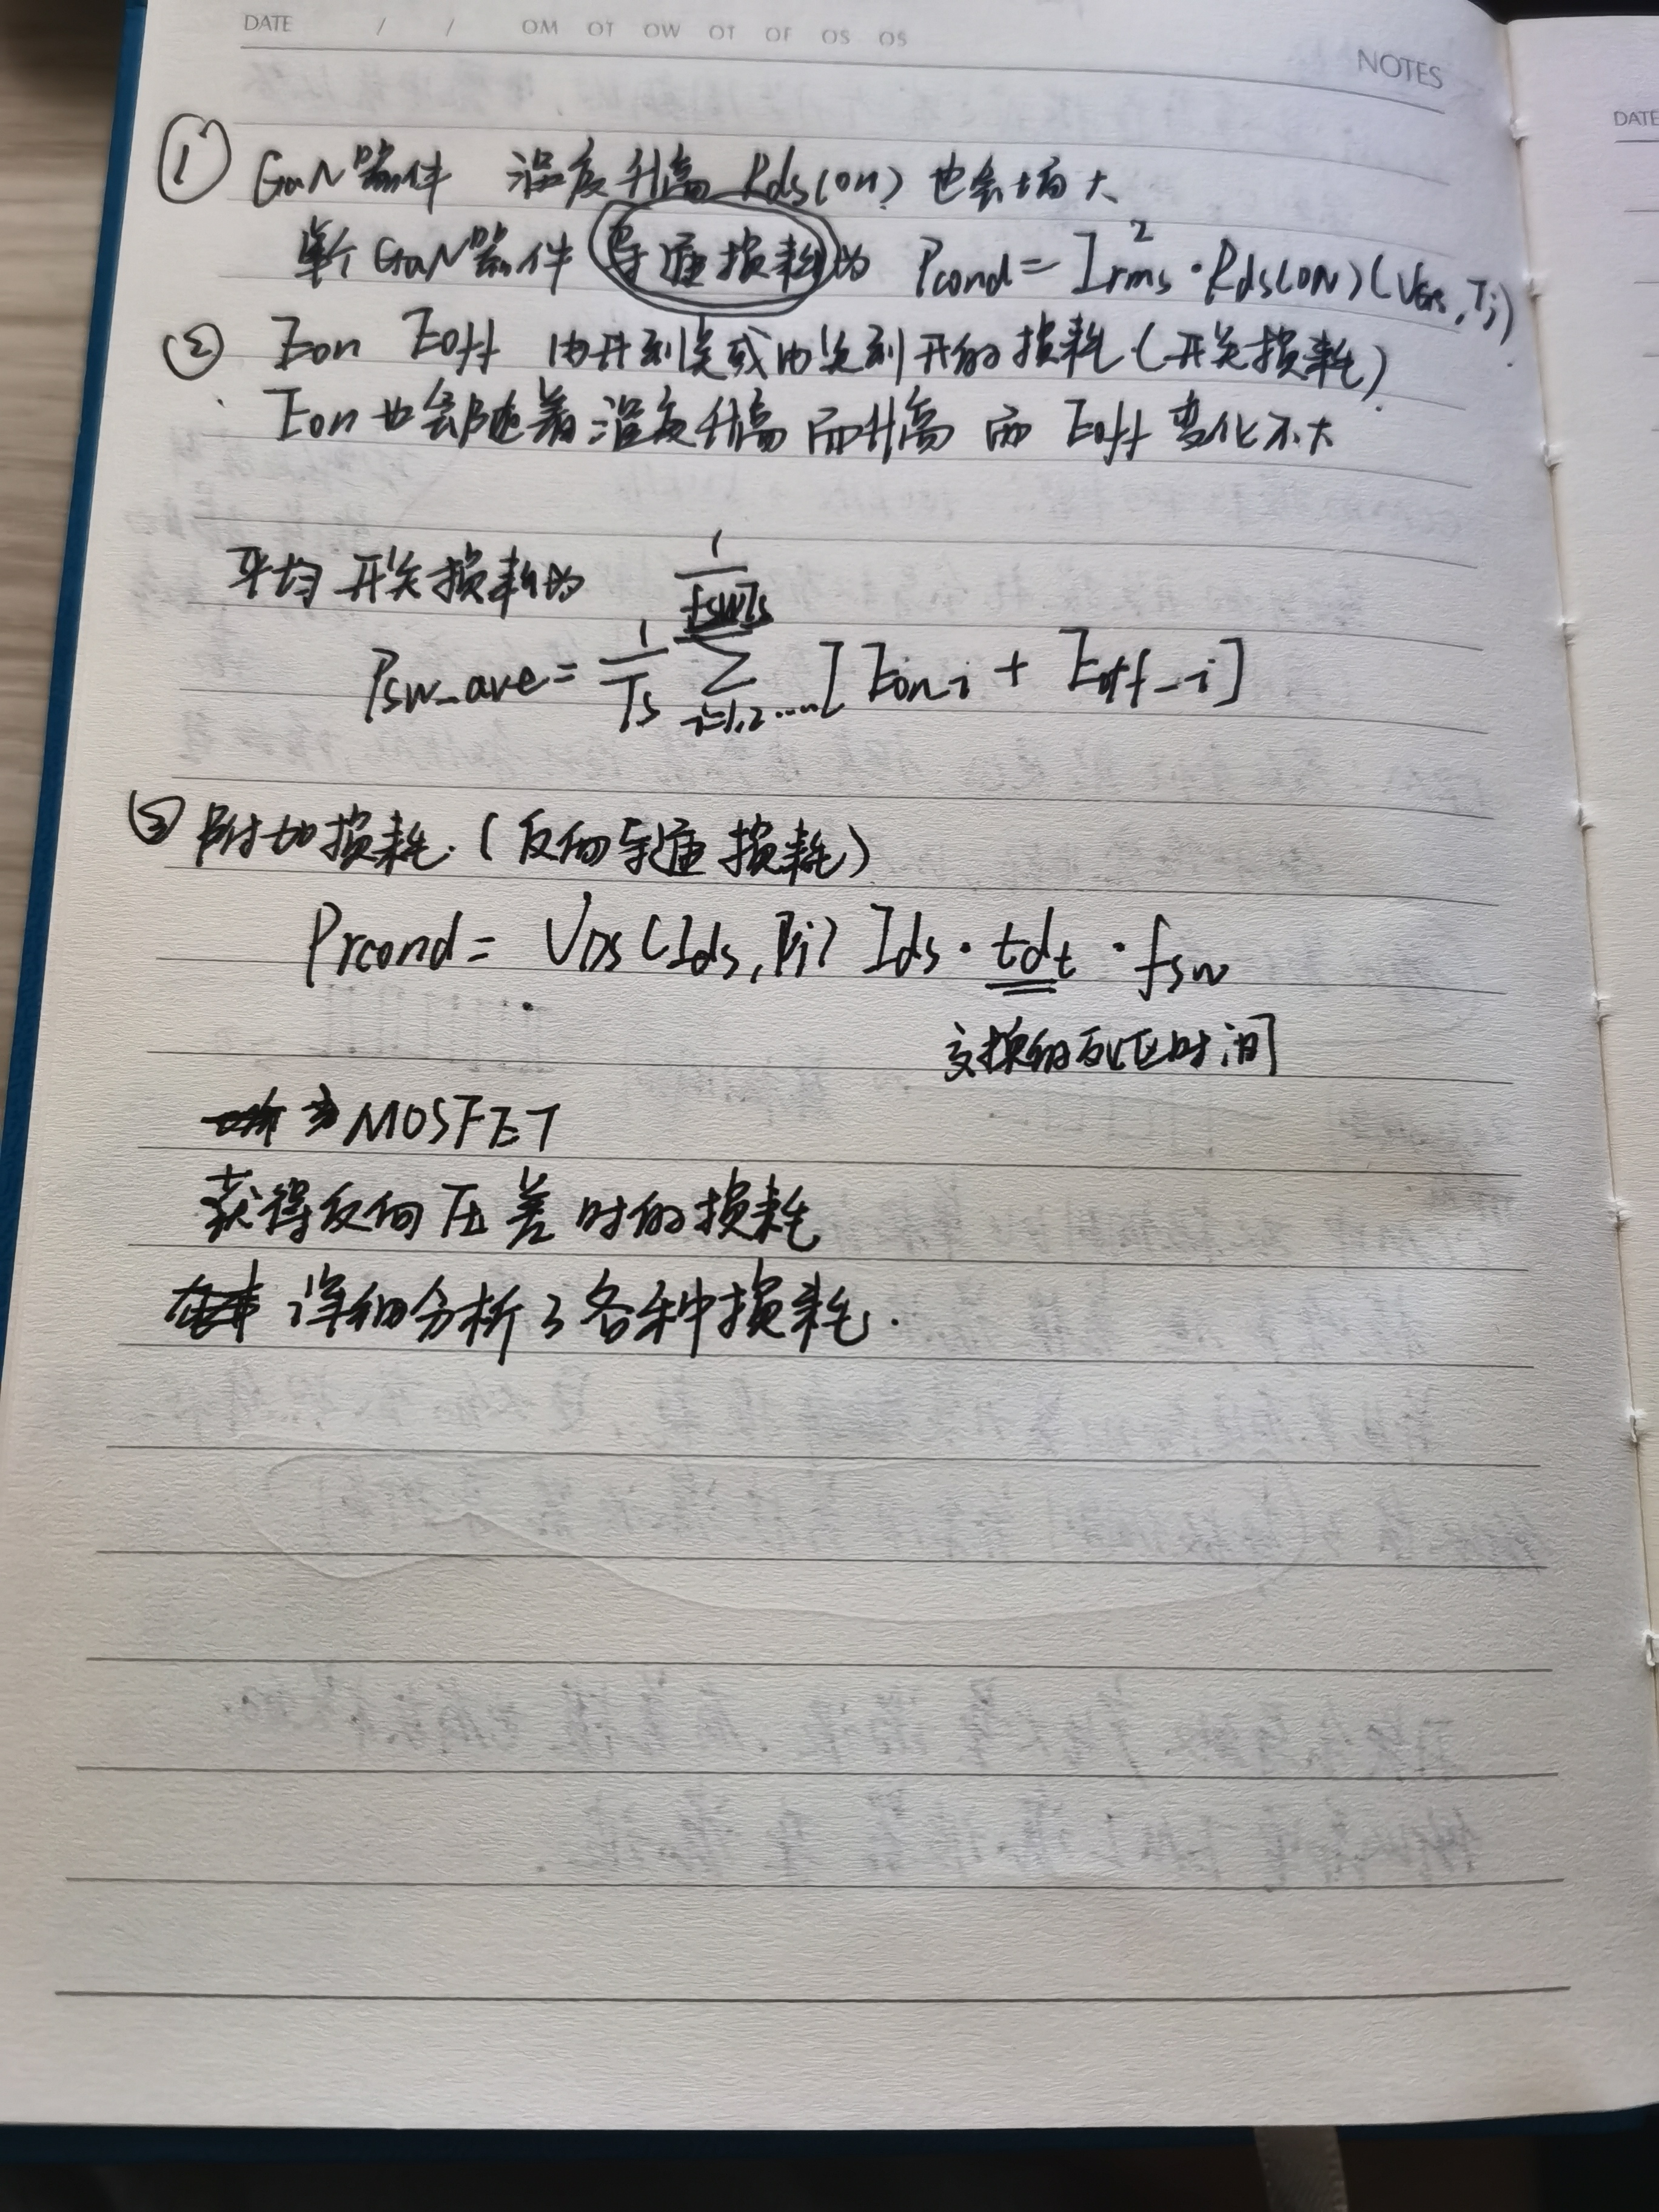 DATE / / OM OT OW OT OF OS OS
NOTES
DATE
① GaN器件 温度升高 Rds(on) 也会增大
单个GaN器件 导通损耗为 Pcond = Irms² · Rds(ON)(VGS, Tj)
② Eon Eoff 由开到关或由关到开的损耗(开关损耗)
Eon也会随着温度升高而升高 而 Eoff 变化不大
平均开关损耗为
1
fswTs
Psw_ave = 1/Ts ∑ i=1,2..... [Eon_i + Eoff_i]
③ 附加损耗.(反向导通损耗)
Prcond = VDS(Ids, Tj) Ids · tdt · fsw
交换的死区时间
MOSFET
获得反向压差时的损耗
详细分析了各种损耗.